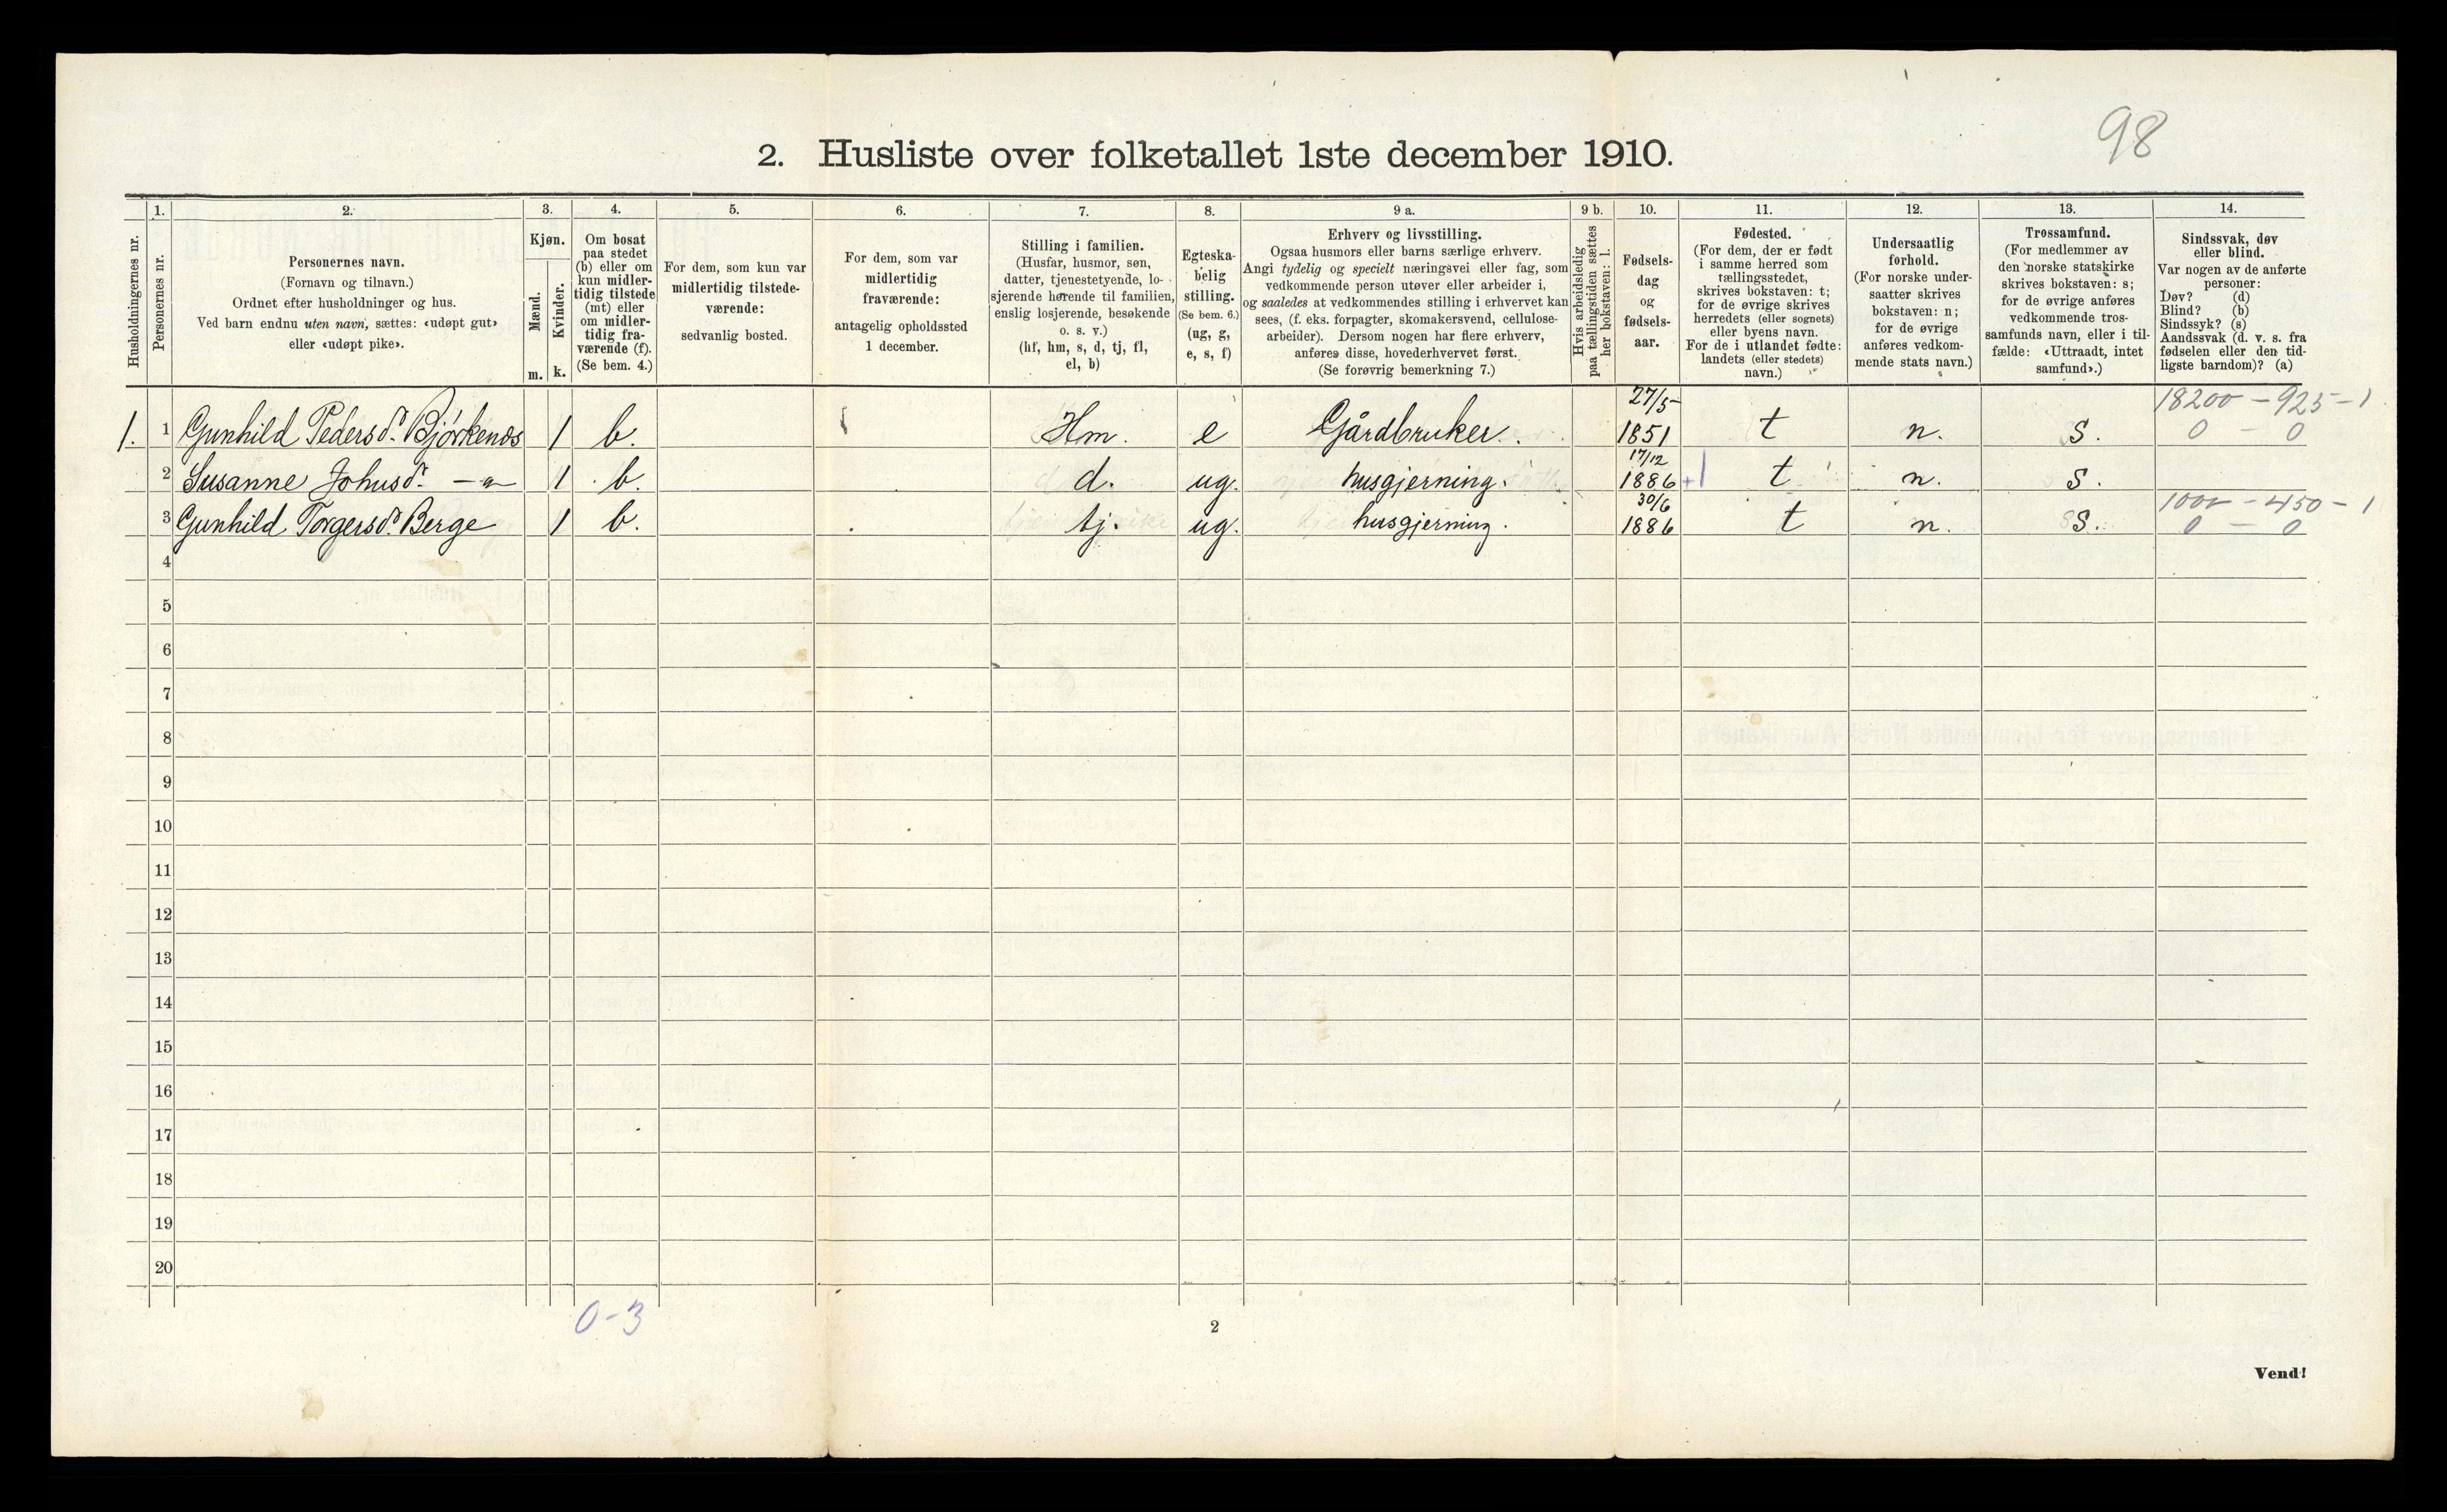 98
2. Husliste over folketallet 1ste december 1910.
Husholdningernes nr.
1.
Personernes nr.
2.
Personernes navn.
(Fornavn og tilnavn.)
Ordnet efter husholdninger og hus.
Ved barn endnu uten navn, sættes: «udøpt gut»
eller «udøpt pike».
3.
Kjøn.
Mænd.
m.
Kvinder.
k.
4.
Om bosat
paa stedet
(b) eller om
kun midler-
tidig tilstede
(mt) eller
om midler-
tidig fra-
værende (f).
(Se bem. 4.)
5.
For dem, som kun var
midlertidig tilstede-
værende:
sedvanlig bosted.
6.
For dem, som var
midlertidig
fraværende:
antagelig opholdssted
1 december.
7.
Stilling i familien.
(Husfar, husmor, søn,
datter, tjenestetyende, lo-
sjerende hørende til familien,
enslig losjerende, besøkende
o. s. v.)
(hf, hm, s, d, tj, fl,
el, b)
8.
Egteska-
belig
stilling.
(Se bem. 6.)
(ug, g,
e, s, f)
9 a.
Erhverv og livsstilling.
Ogsaa husmors eller barns særlige erhverv.
Angi tydelig og specielt næringsvei eller fag, som
vedkommende person utøver eller arbeider i,
og saaledes at vedkommendes stilling i erhvervet kan
sees, (f. eks. forpagter, skomakersvend, cellulose-
arbeider). Dersom nogen har flere erhverv,
anføres disse, hovederhvervet først.
(Se forøvrig bemerkning 7.)
9 b.
Hvis arbeidsledig
paa tællingstiden sættes
her bokstaven: l.
10.
Fødsels-
dag
og
fødsels-
aar.
11.
Fødested.
(For dem, der er født
i samme herred som
tællingsstedet,
skrives bokstaven: t;
for de øvrige skrives
herredets (eller sognets)
eller byens navn.
For de i utlandet fødte:
landets (eller stedets)
navn.)
12.
Undersaatlig
forhold.
(For norske under-
saatter skrives
bokstaven: n;
for de øvrige
anføres vedkom-
mende stats navn.)
13.
Trossamfund.
(For medlemmer av
den norske statskirke
skrives bokstaven: s;
for de øvrige anføres
vedkommende tros-
samfunds navn, eller i til-
fælde: «Uttraadt, intet
samfund».)
14.
Sindssvak, døv
eller blind.
Var nogen av de anførte
personer:
Døv? (d)
Blind? (b)
Sindssyk? (s)
Aandssvak (d. v. s. fra
fødselen eller den tid-
ligste barndom)? (a)
27/5 18200 - 925 - 1
1. 1 Gunhild Pedersd. Bjørkenes 1 b. Hm. e Gårdbruker. 1851 t n. S. 0 - 0
17/12
2 Susanne Johnsd. - " - 1 b. d. ug. husgjerning. 1886 +1 t n. S.
30/6 1000 - 450 - 1
3 Gunhild Torgersd. Berge 1 b. tj. ug. husgjerning. 1886 t n. S. 0 - 0
4
5
6
7
8
9
10
11
12
13
14
15
16
17
18
19
20
0-3
2
Vend!